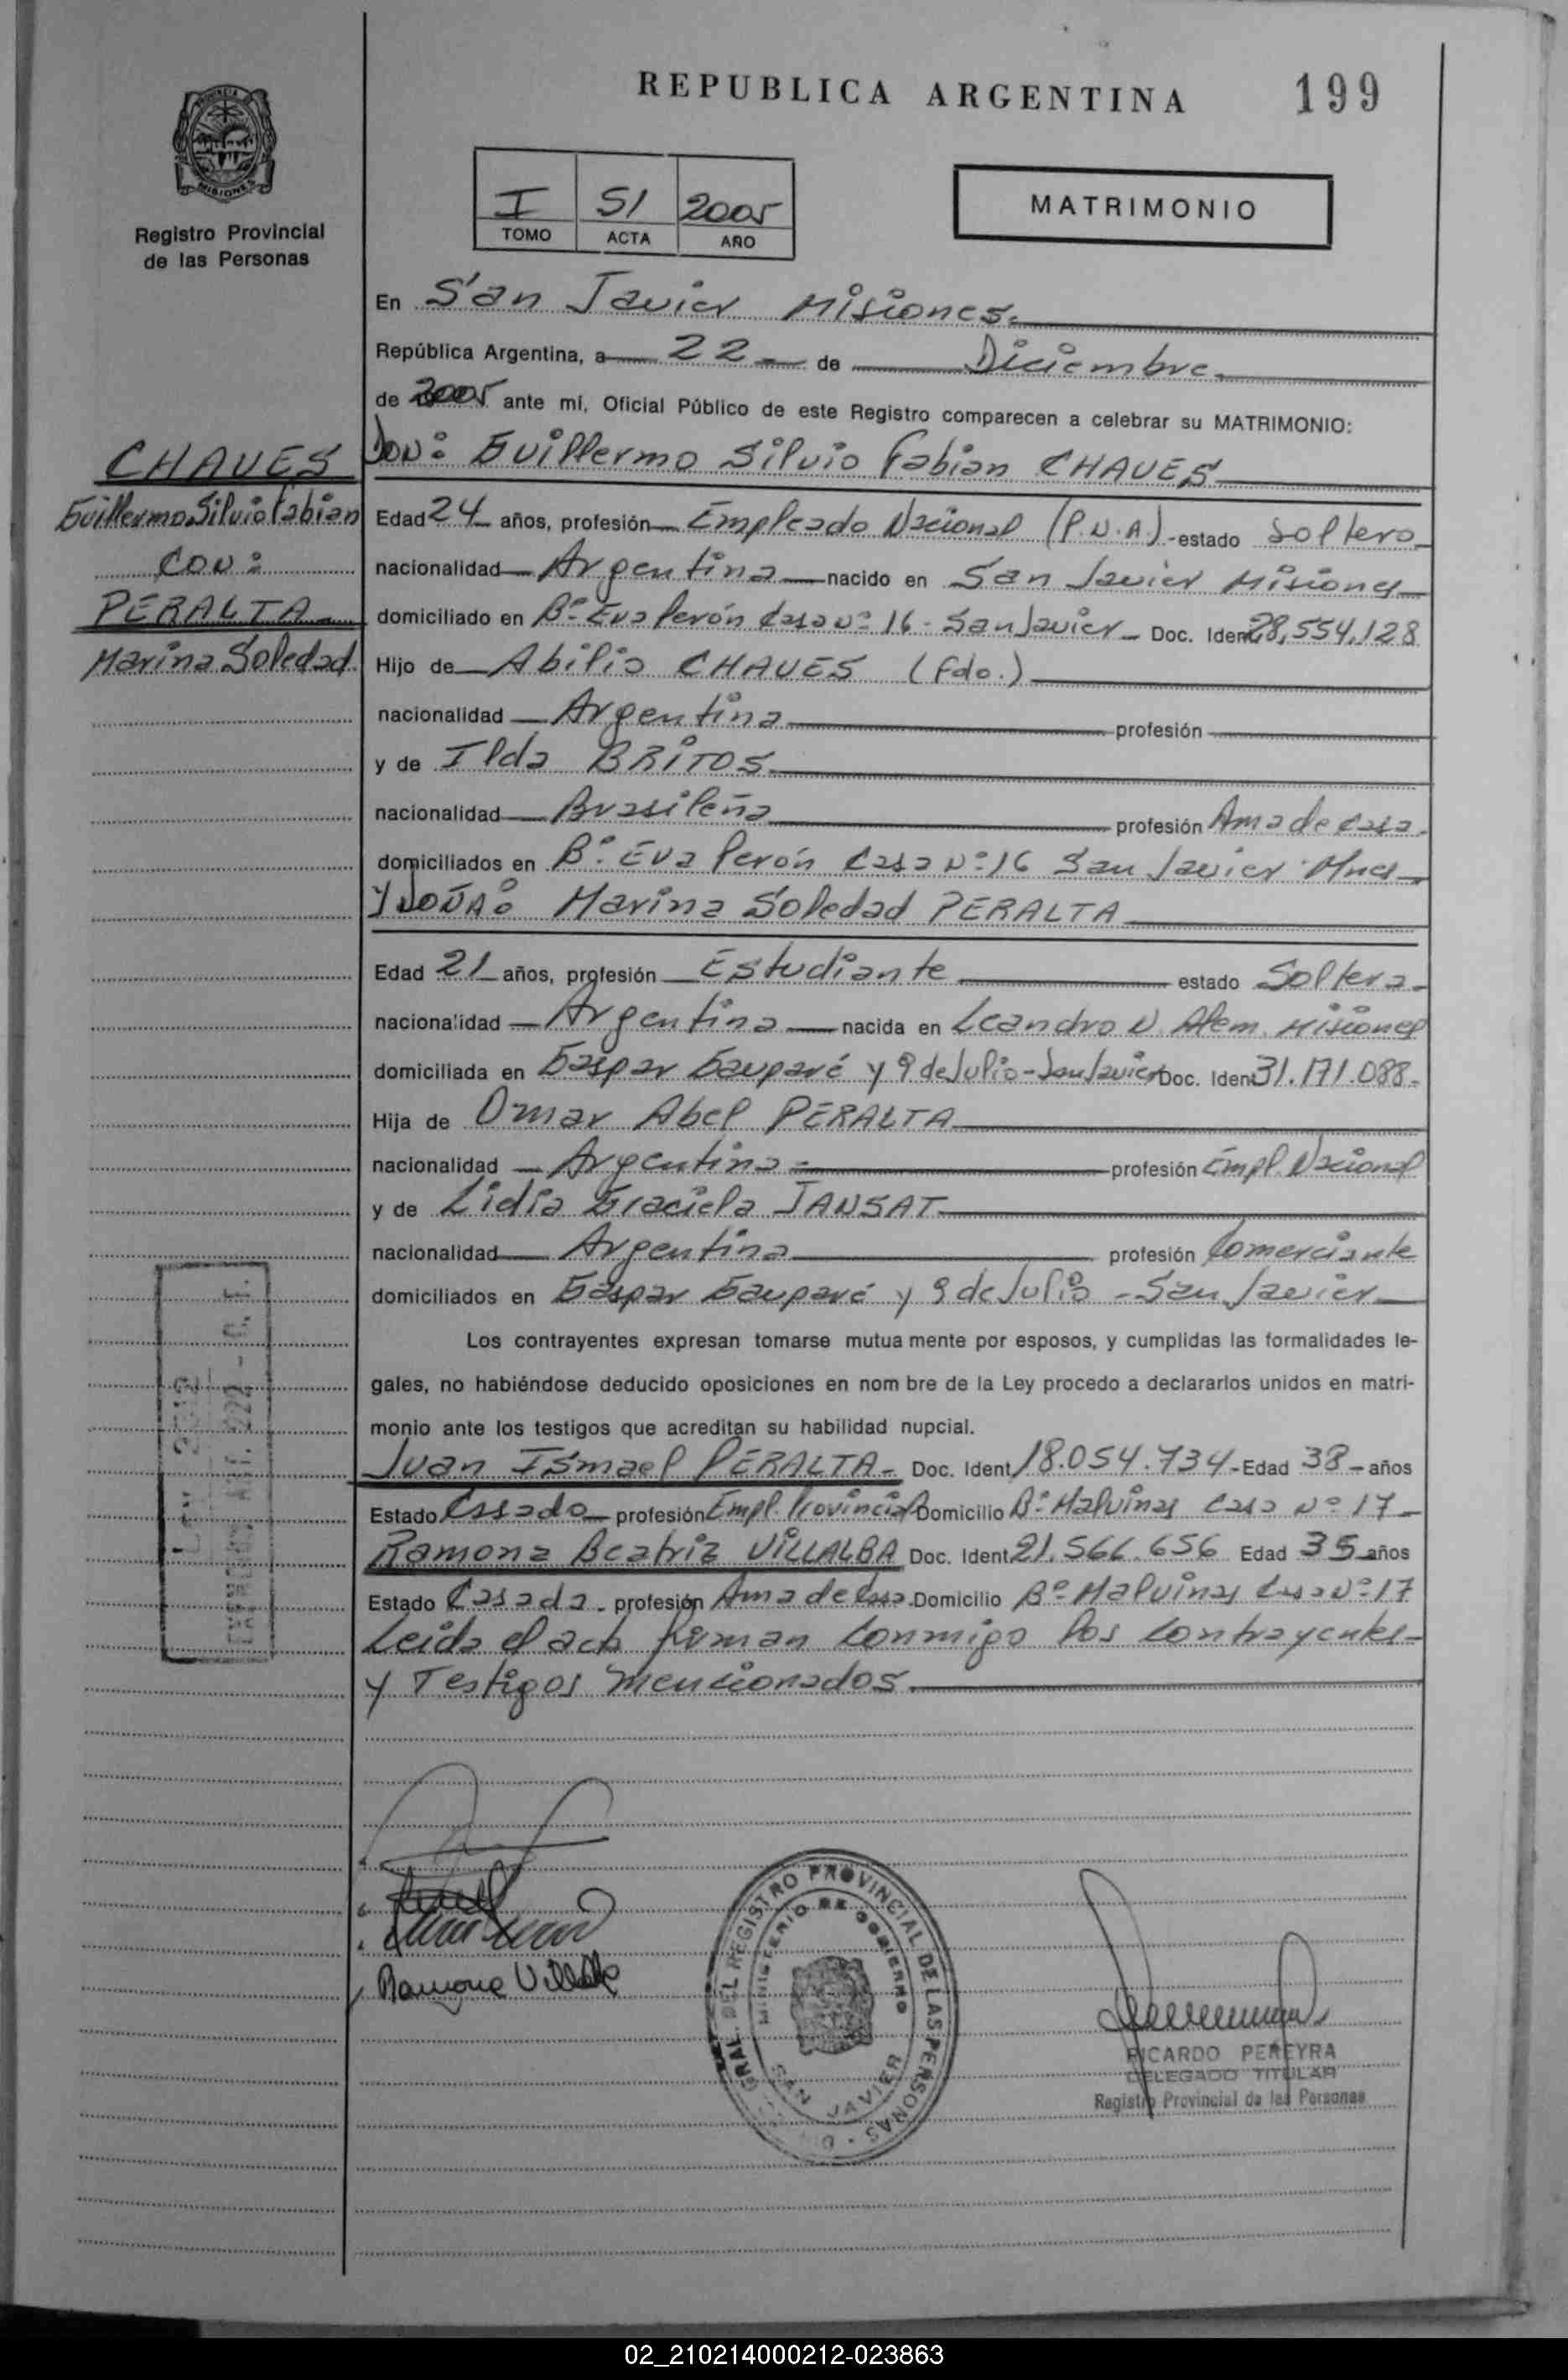 REPUBLICA ARGENTINA 199
PROVINCIA DE MISIONES
Registro Provincial
de las Personas
I 51 2005
TOMO ACTA AÑO
MATRIMONIO
En San Javier Misiones.
República Argentina, a 22 de Diciembre
de 2005 ante mí, Oficial Público de este Registro comparecen a celebrar su MATRIMONIO:
CHAVES
Guillermo Silvio Fabian
CON:
PERALTA
Marina Soledad
DON: Guillermo Silvio Fabian CHAVES
Edad 24 años, profesión Empleado Nacional (P.N.A.) - estado Soltero
nacionalidad Argentina nacido en San Javier Misiones
domiciliado en Bº Eva Perón Casa Nº 16 - San Javier Doc. Ident. 28,554,128
Hijo de Abilio CHAVES (Fdo.)
nacionalidad Argentina profesión
y de Ilda BRITOS
nacionalidad Brasileña profesión Ama de Casa
domiciliados en Bº Eva Perón Casa Nº 16 San Javier Mnes
Y DOÑA: Marina Soledad PERALTA
Edad 21 años, profesión Estudiante estado Soltera
nacionalidad Argentina nacida en Leandro N. Alem Misiones
domiciliada en Gaspar Gauparé y 9 de Julio - San Javier Doc. Ident. 31.171.088
Hija de Omar Abel PERALTA
nacionalidad Argentina profesión Empl. Nacional
y de Lidia Graciela JANSAT
nacionalidad Argentina profesión Comerciante
domiciliados en Gaspar Gauparé y 9 de Julio - San Javier
Los contrayentes expresan tomarse mutua mente por esposos, y cumplidas las formalidades le-
gales, no habiéndose deducido oposiciones en nom bre de la Ley procedo a declararlos unidos en matri-
monio ante los testigos que acreditan su habilidad nupcial.
Juan Ismael PERALTA - Doc. Ident. 18.054.734 - Edad 38 - años
Estado Casado profesión Empl. Provincial Domicilio Bº Malvinas Casa Nº 17
Ramona Beatriz VILLALBA Doc. Ident. 21.566.656 Edad 35 años
Estado Casada profesión Ama de Casa Domicilio Bº Malvinas Casa Nº 17
Leida el acta firman conmigo los contrayentes
y Testigos mencionados.
Ramona Villalba
GRAL. DEL REGISTRO PROVINCIAL DE LAS PERSONAS
MINISTERIO DE GOBIERNO
SAN JAVIER
RICARDO PEREYRA
DELEGADO TITULAR
Registro Provincial de las Personas
02_210214000212-023863